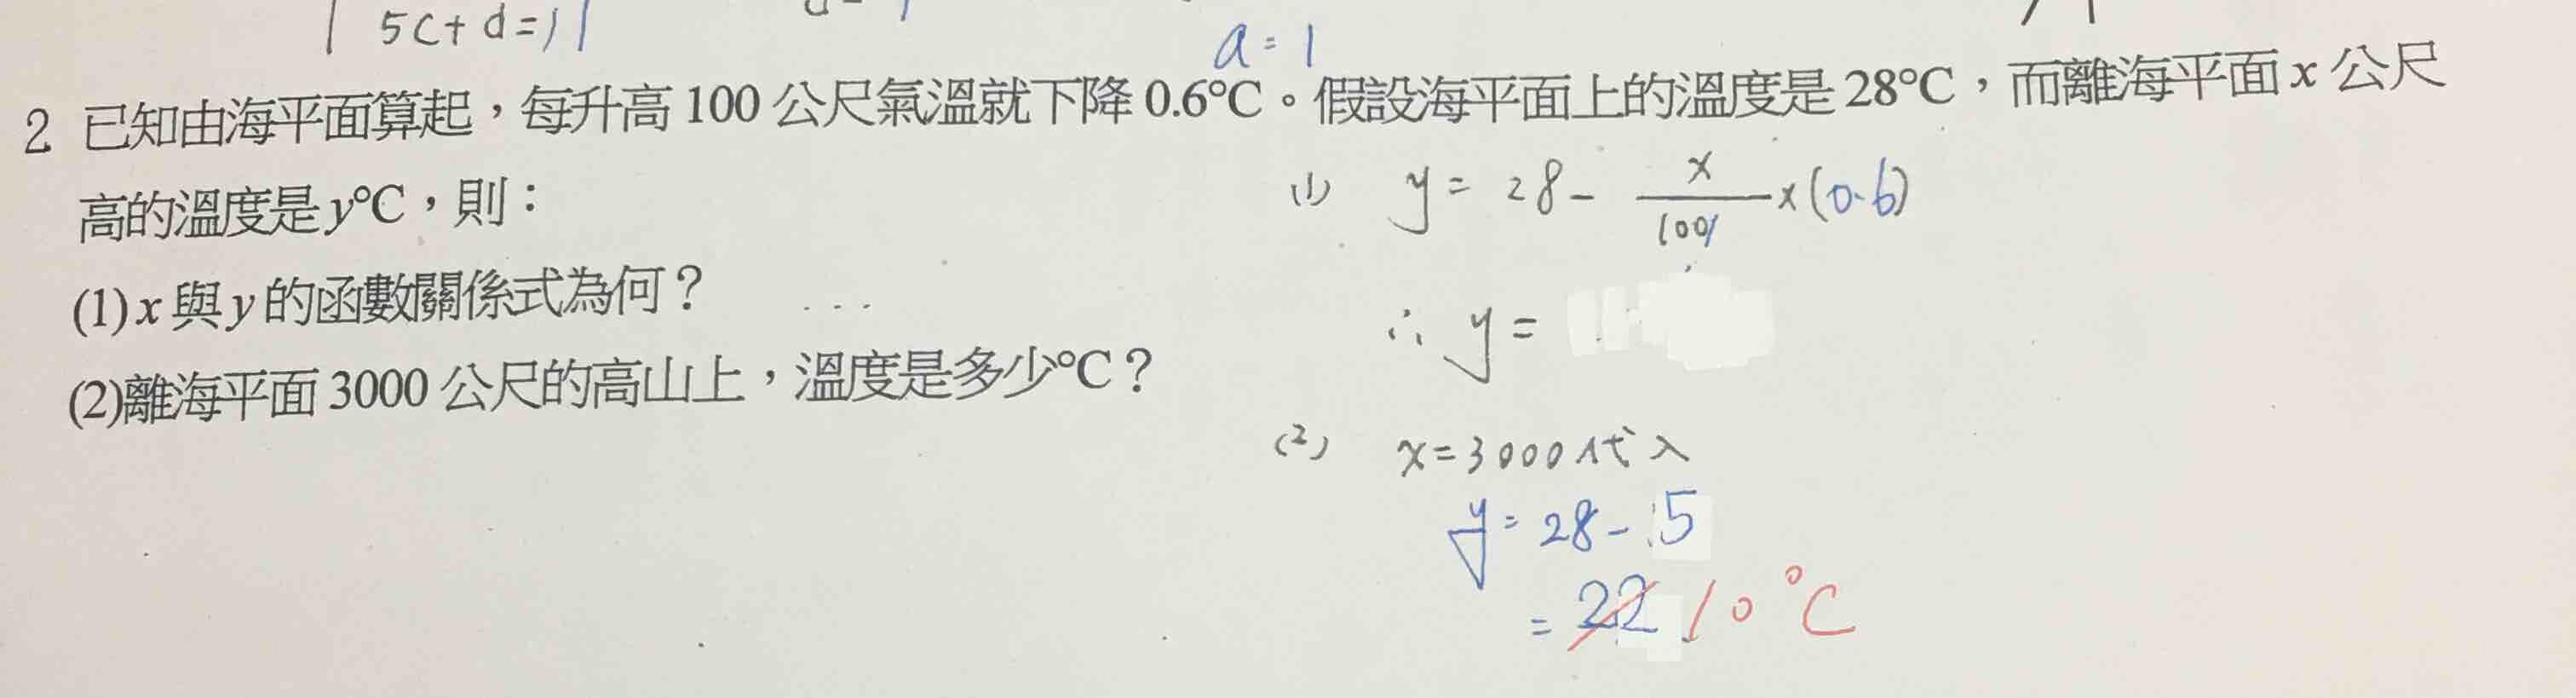 5c+d=11
a=1
2 已知由海平面算起，每升高 100 公尺氣溫就下降 0.6°C。假設海平面上的溫度是 28°C，而離海平面 x 公尺
高的溫度是 y°C，則：
(1) x 與 y 的函數關係式為何？
(2)離海平面 3000 公尺的高山上，溫度是多少°C？
(1) y = 28 - x/100 ×(0.6)
∴ y =
(2) x=3000代入
y = 28 - 15
= 22 10°C